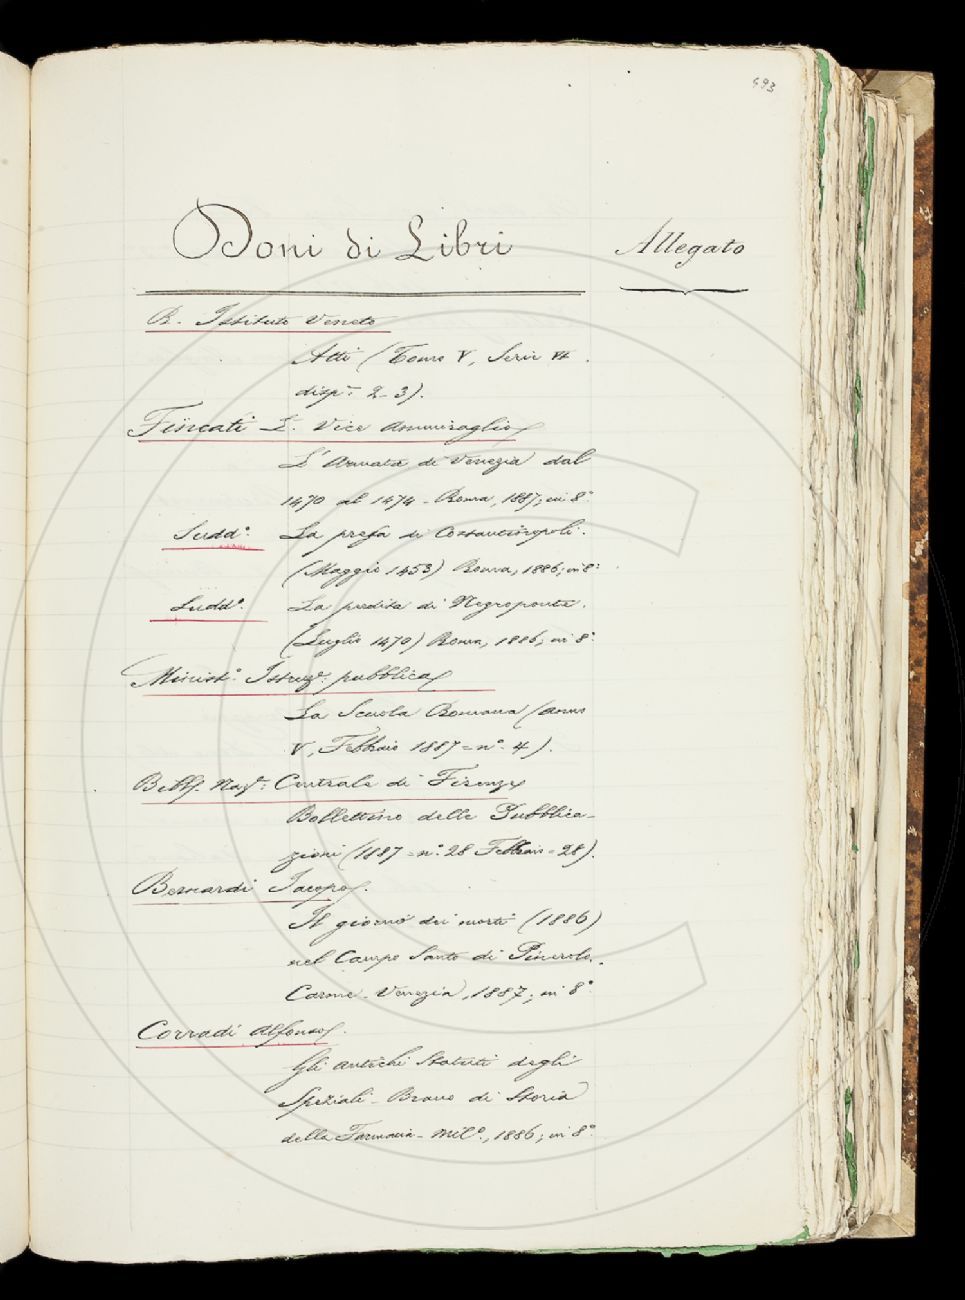 493
Doni di Libri
Allegato
R. Istituto Veneto
Atti (Tomo V, Serie VI
disp.e 2-3).
Fincati L. Vice Ammiraglio
L'Armata di Venezia dal
1470 al 1474 - Roma, 1887; in 8°
Sudd.° La presa di Costantinopoli.
(Maggio 1453) Roma, 1886; in 8°
Sudd.° La perdita di Negroponte.
(Luglio 1470) Roma, 1886; in 8°
Minist.° Istruz.e pubblica
La Scuola Romana (anno
V, Febbraio 1887 = n.° 4).
Bibl. Naz.e Centrale di Firenze
Bollettino delle Pubblica-
zioni (1887 = n.° 28 Febbraio = 28).
Bernardi Jacopo.
Il giorno dei morti (1886)
nel Campo Santo di Pinerolo.
Carme - Venezia, 1887; in 8°
Corradi Alfonso.
Gli antichi Statuti degli
Speziali - Brano di Storia
della Farmacia - Mil.°, 1886; in 8°